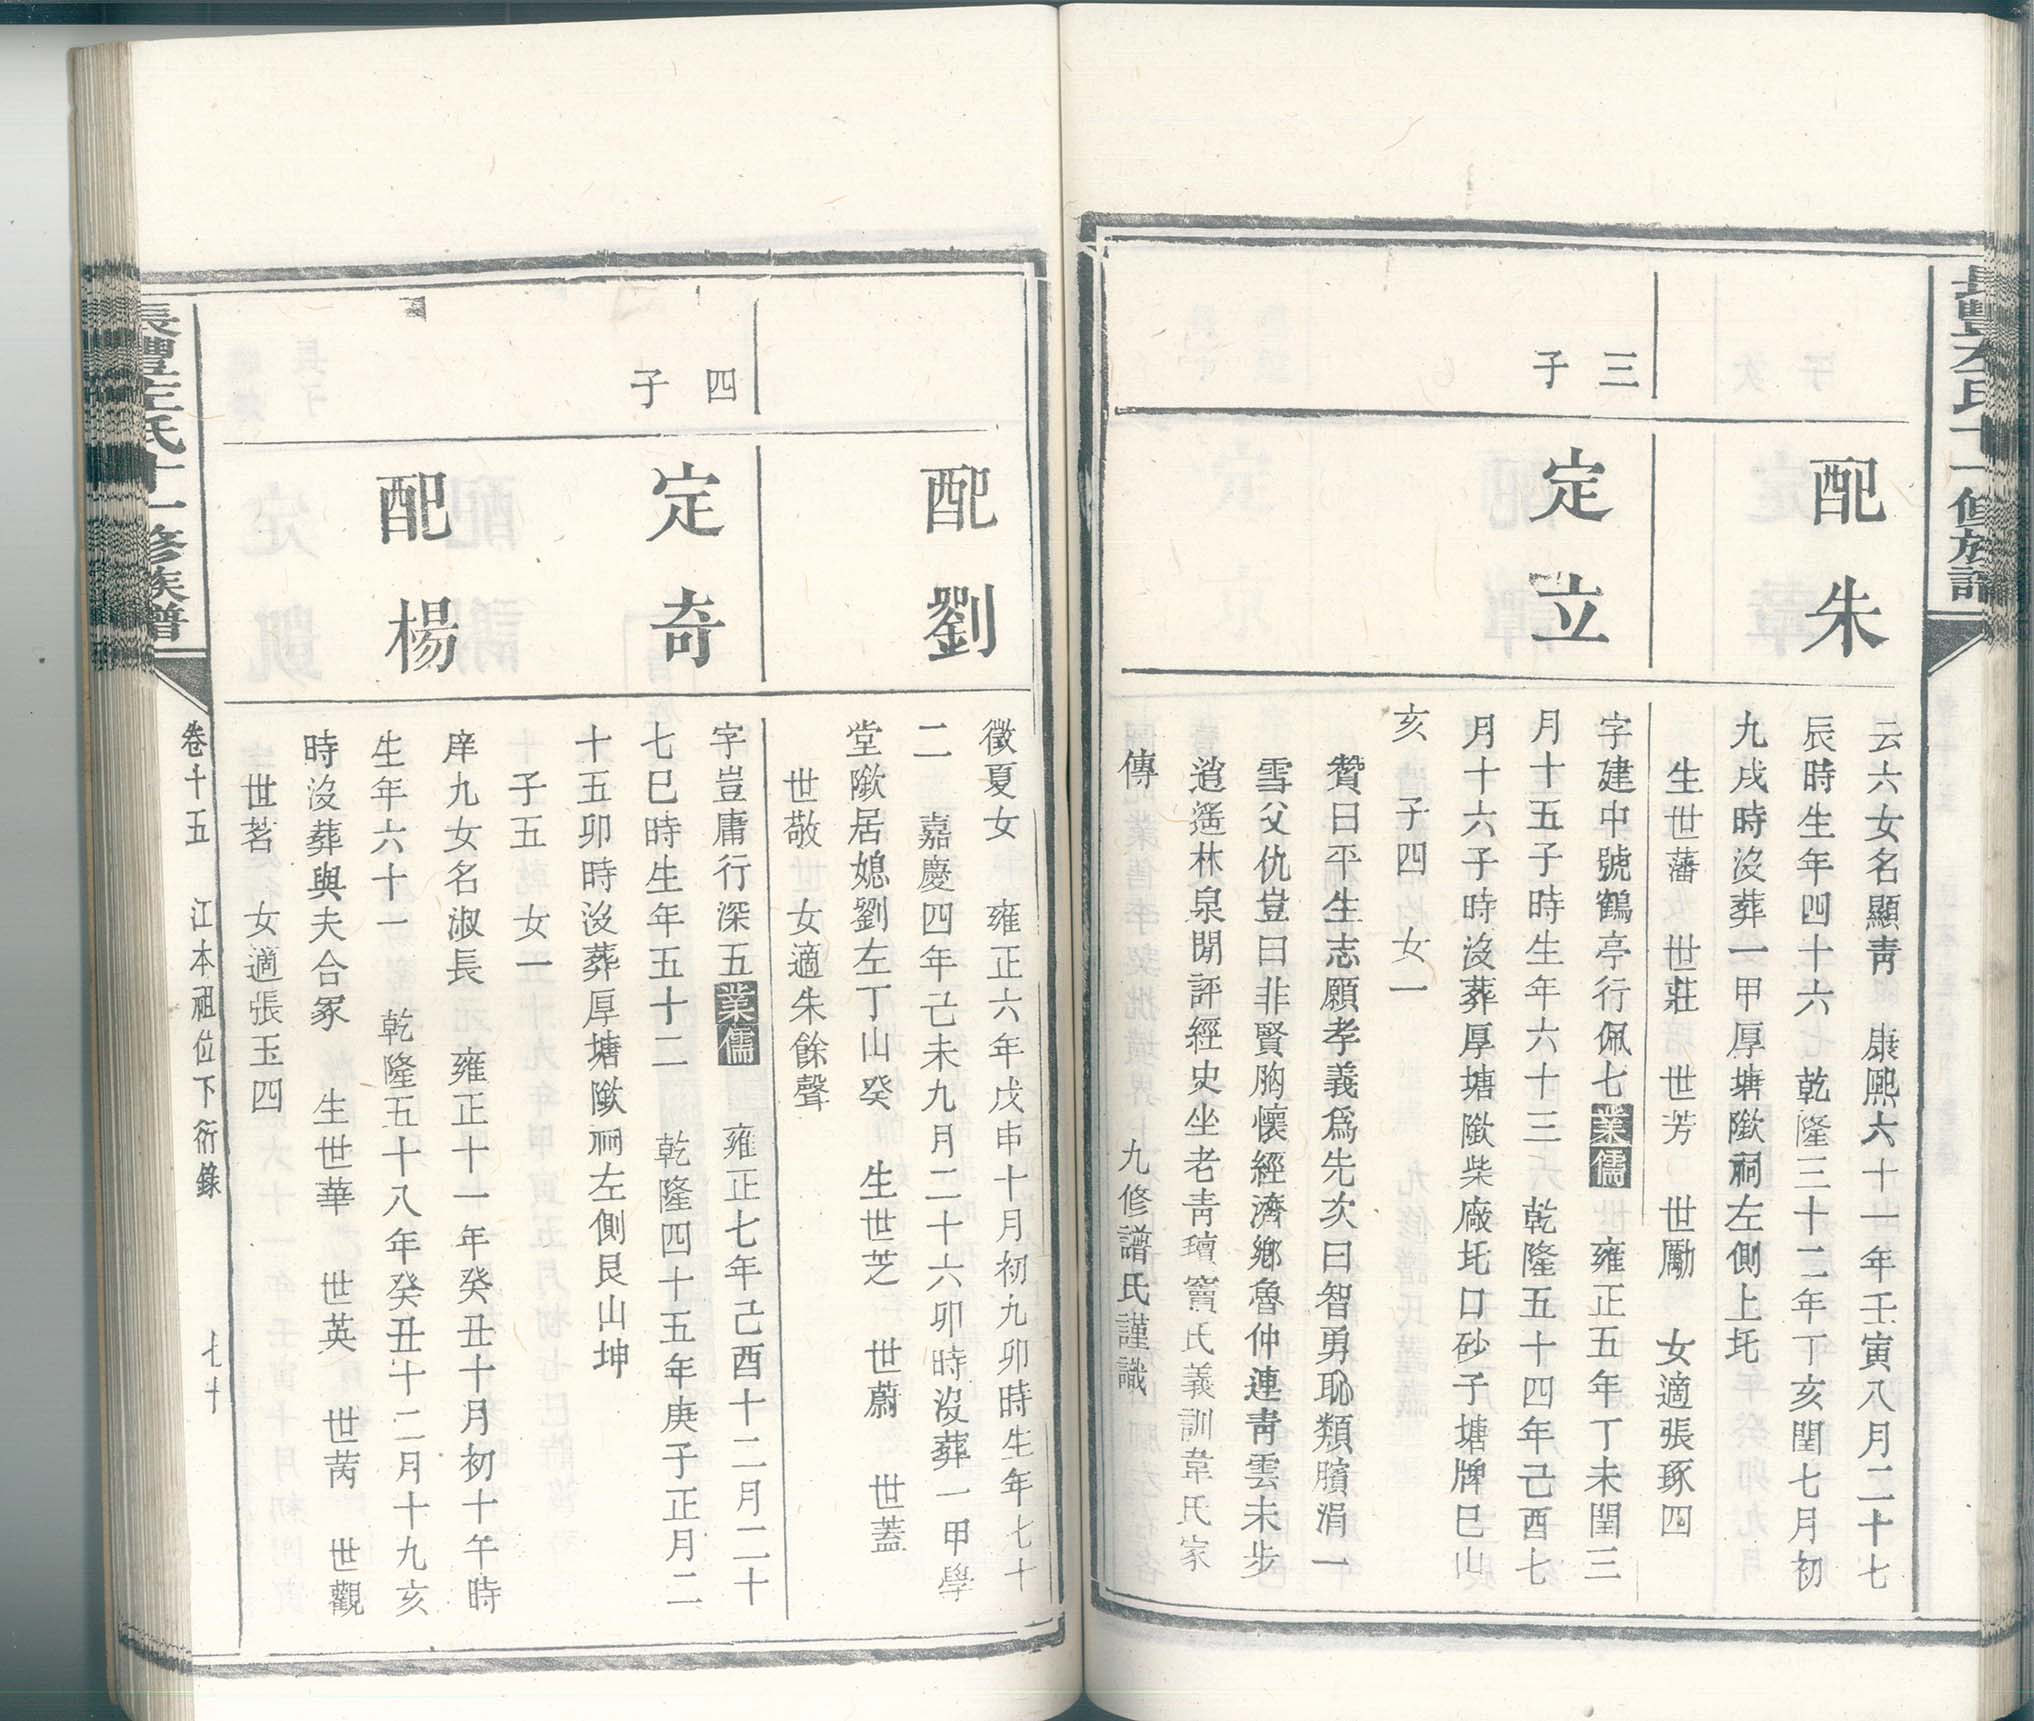 長豐左氏十一修族譜
配朱
云六女名顯靑　康熙六十一年壬寅八月二十七
辰時生年四十六　乾隆三十二年丁亥閏七月初
九戌時沒葬一甲厚塘㘭祠左側上坉
生世藩　世莊　世芳　世勵　女適張琢四
三子
定立
字建中號鶴亭行佩七業儒　雍正五年丁未閏三
月十五子時生年六十三　乾隆五十四年己酉七
月十六子時沒葬厚塘㘭柴廠坉口砂子塘牌巳山
亥　子四　女一
贊曰平生志願孝義爲先次曰智勇恥類臏涓一
雪父仇豈曰非賢胸懷經濟鄉魯仲連靑雲未步
逍遙林泉閒評經史坐老靑氊竇氏義訓韋氏家
傳　九修譜氏謹識
配劉
徵夏女　雍正六年戊申十月初九卯時生年七十
二　嘉慶四年己未九月二十六卯時沒葬一甲學
堂㘭居媳劉左丁山癸　生世芝　世蔚　世蓋
世敬　女適朱餘聲
四子
定奇
字豈庸行深五業儒　雍正七年己酉十二月二十
七巳時生年五十二　乾隆四十五年庚子正月二
十五卯時沒葬厚塘㘭祠左側艮山坤
子五　女一
配楊
庠九女名淑長　雍正十一年癸丑十月初十午時
生年六十一　乾隆五十八年癸丑十二月十九亥
時沒葬與夫合冢　生世華　世英　世芮　世觀
世茗　女適張玉四
長豐左氏十一修族譜
卷十五　江本祖位下衍錄　七十